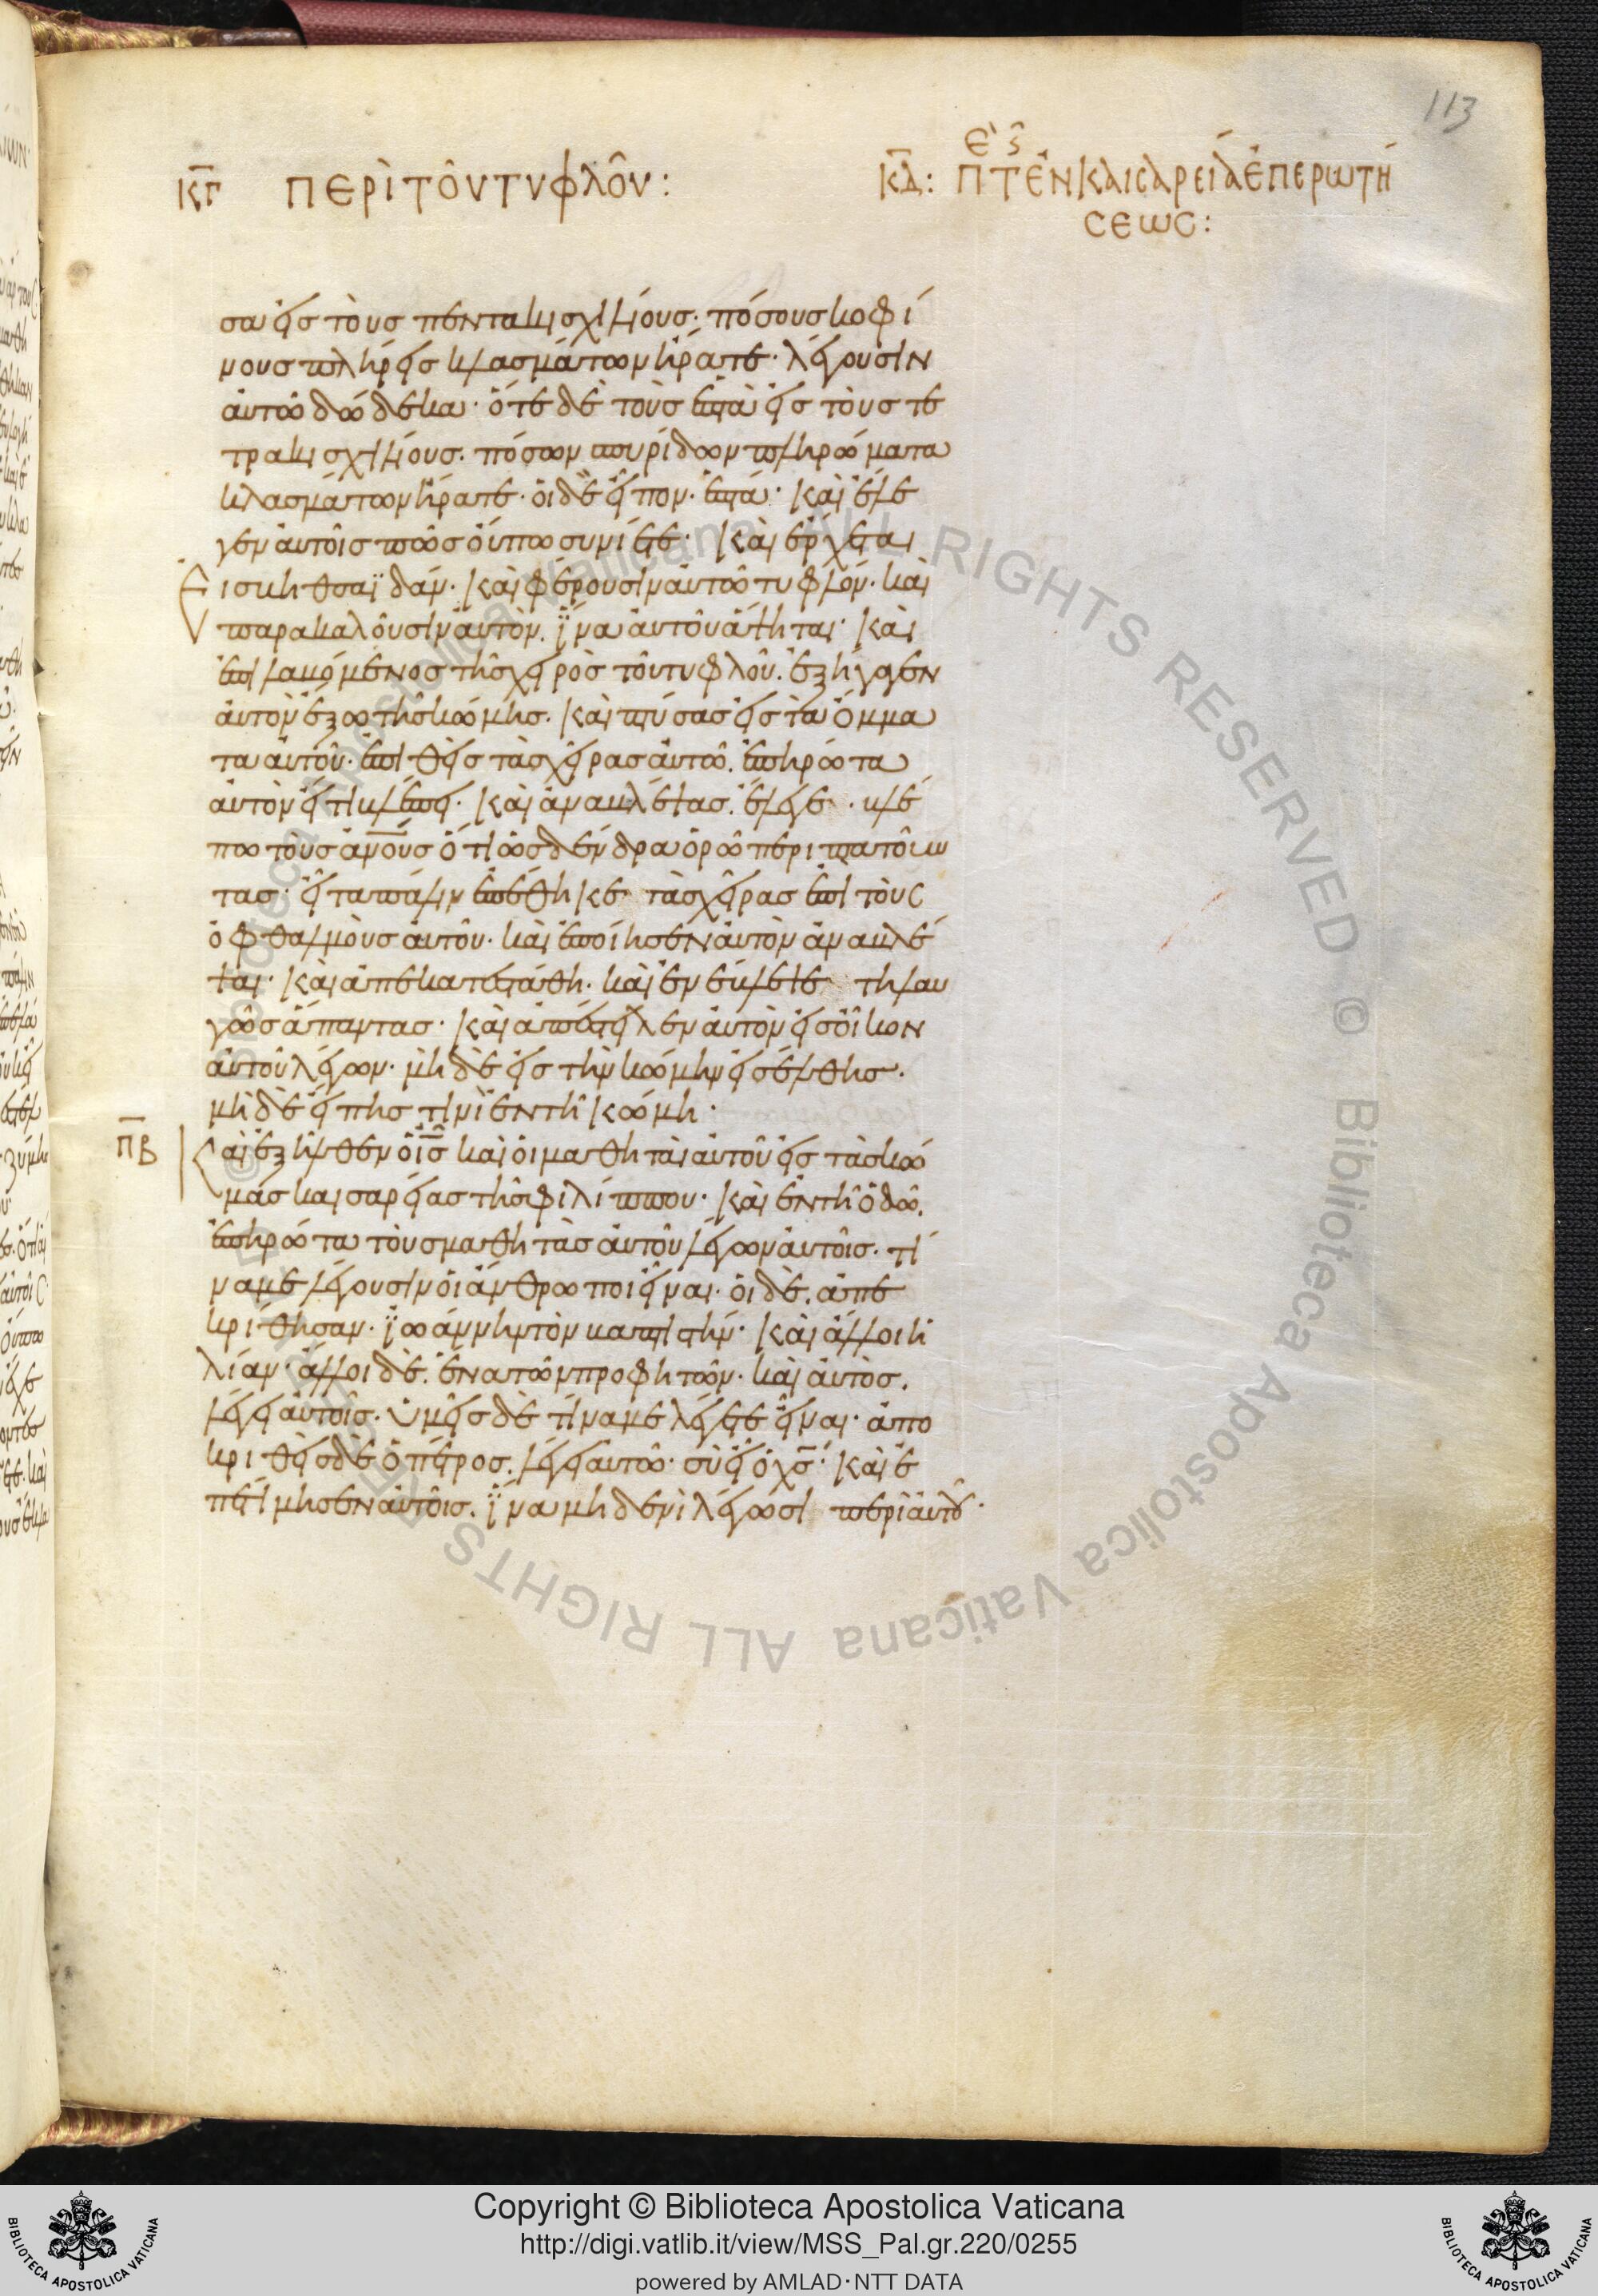 113
κγ περὶ τοῦ τυφλοῦ:
κδ: π τ ἐν καισαρεία ἐπερωτή
σεως:
σα εἰς τοὺς πεντακισχιλίους· πόσους κοφί
νους πλήρεις κλασμάτων ἤρατε· λέγουσιν
αὐτῶ δώδεκα· ὅτε δὲ τοὺς ἑπτὰ εἰς τοὺς τε
τρακισχιλίους· πόσων σπυρίδων πληρώματα
κλασμάτων ἤρατε· οἱ δὲ εἶπον· ἑπτά· καὶ ἔλε
γεν αὐτοῖς πῶς οὔπω συνίετε· καὶ ἔρχεται
εἰς βηθσαϊδάν· καὶ φέρουσιν αὐτῶ τυφλόν· καὶ
παρακαλοῦσιν αὐτὸν. ἵνα αὐτοῦ ἅψηται· καὶ
ἐπιλαβόμενος τῆς χειρὸς τοῦ τυφλοῦ. ἐξήγαγεν
αὐτὸν ἔξω τῆς κώμης· καὶ πτύσας εἰς τὰ ὄμμα
τα αὐτοῦ· ἐπιθεὶς τὰς χεῖρας αὐτῶ. ἐπηρώτα
αὐτὸν εἴ τι βλέπει· καὶ ἀναβλέψας. ἔλεγε· βλέ
πω τοὺς ἀνους ὅτι ὡς δένδρα ὁρῶ περιπατοῦν
τας· εἶτα πάλιν ἐπέθηκε τὰς χεῖρας ἐπὶ τοὺς
ὀφθαλμοὺς αὐτοῦ· καὶ ἐποίησεν αὐτὸν ἀναβλέ
ψαι· καὶ ἀπεκατεστάθη· καὶ ἐνέβλεψε τηλαυ
γῶς ἅπαντας· καὶ ἀπέστειλεν αὐτὸν εἰς οἶκον
αὐτοῦ λέγων· μὴ δὲ εἰς τὴν κώμην εἰσέλθης·
μὴ δὲ εἴπης τινὶ ἐν τῆ κώμη·
πβ Καὶ ἐξῆλθεν ὁ ις καὶ οἱ μαθηταὶ αὐτοῦ εἰς τὰς κώ
μας καισαρείας τῆς φιλίππου· καὶ ἐν τῆ ὁδῶ.
ἐπηρώτα τοὺς μαθητὰς αὐτοῦ λέγων αὐτοῖς· τί
να με λέγουσιν οἱ ἄνθρωποι εἶναι· οἱ δὲ. ἀπε
κρίθησαν· ἰωάννην τὸν βαπτιστήν· καὶ ἄλλοι ἠ
λίαν· ἄλλοι δὲ. ἕνα τῶν προφητῶν· καὶ αὐτὸς.
λέγει αὐτοῖς· ὑμεῖς δὲ τίνα με λέγετε εἶναι· ἀπο
κριθεὶς δὲ ὁ πέτρος. λέγει αὐτῶ· σὺ εἶ ὁ χς· καὶ ἐ
πετίμησεν αὐτοῖς. ἵνα μηδενὶ λέγωσι περὶ αὐτοῦ·
Copyright © Biblioteca Apostolica Vaticana
http://digi.vatlib.it/view/MSS_Pal.gr.220/0255
powered by AMLAD·NTT DATA